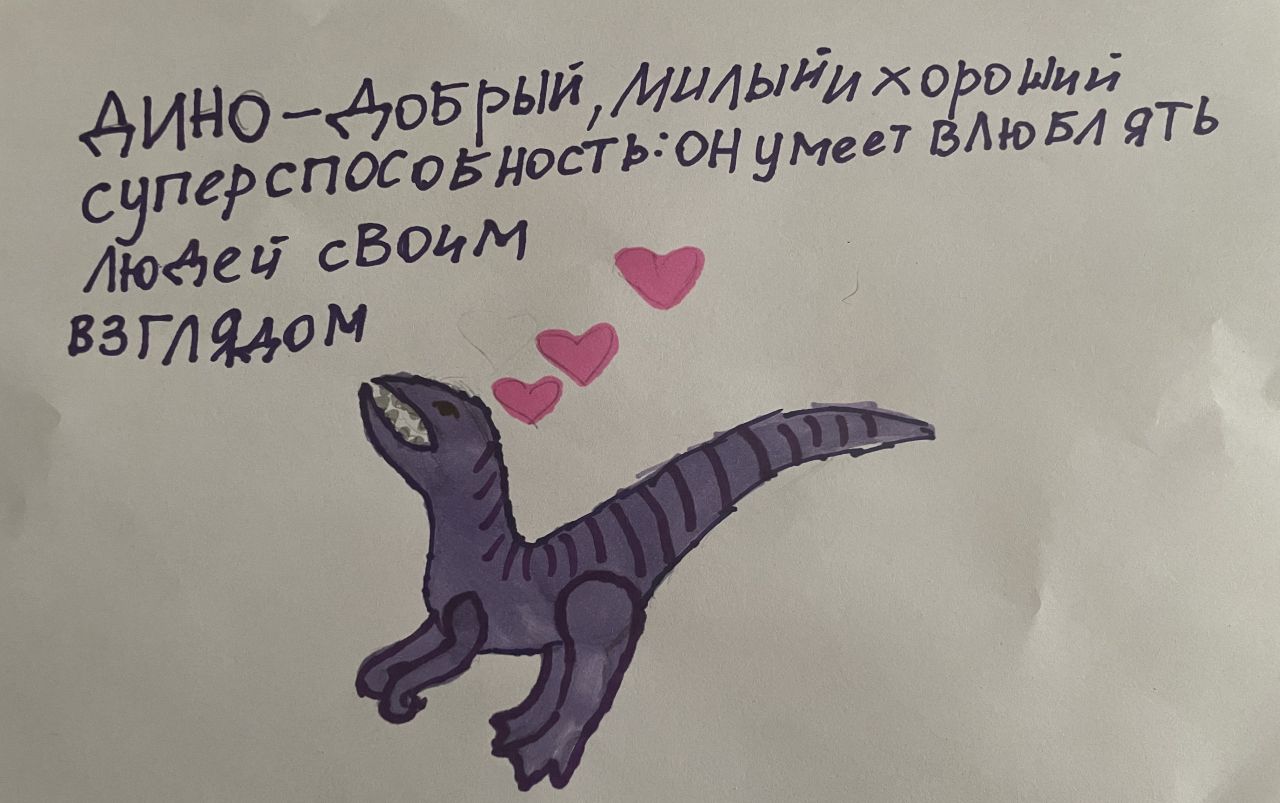 ДИНО – ДОБРЫЙ, МИЛЫЙ И ХОРОШИЙ
СУПЕРСПОСОБНОСТЬ: ОН УМЕЕТ ВЛЮБЛЯТЬ
ЛЮДЕЙ СВОИМ
ВЗГЛЯДОМ